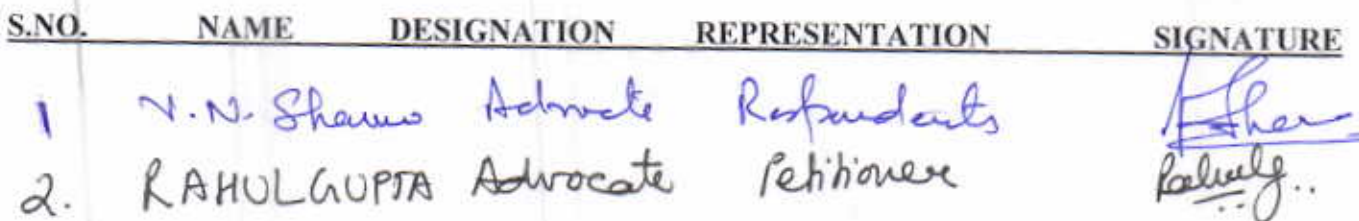 S.NO. NAME DESIGNATION REPRESENTATION SIGNATURE
1 V.N. Sharma Advocate Respondents
2. RAHUL GUPTA Advocate Petitioner Rahulg..